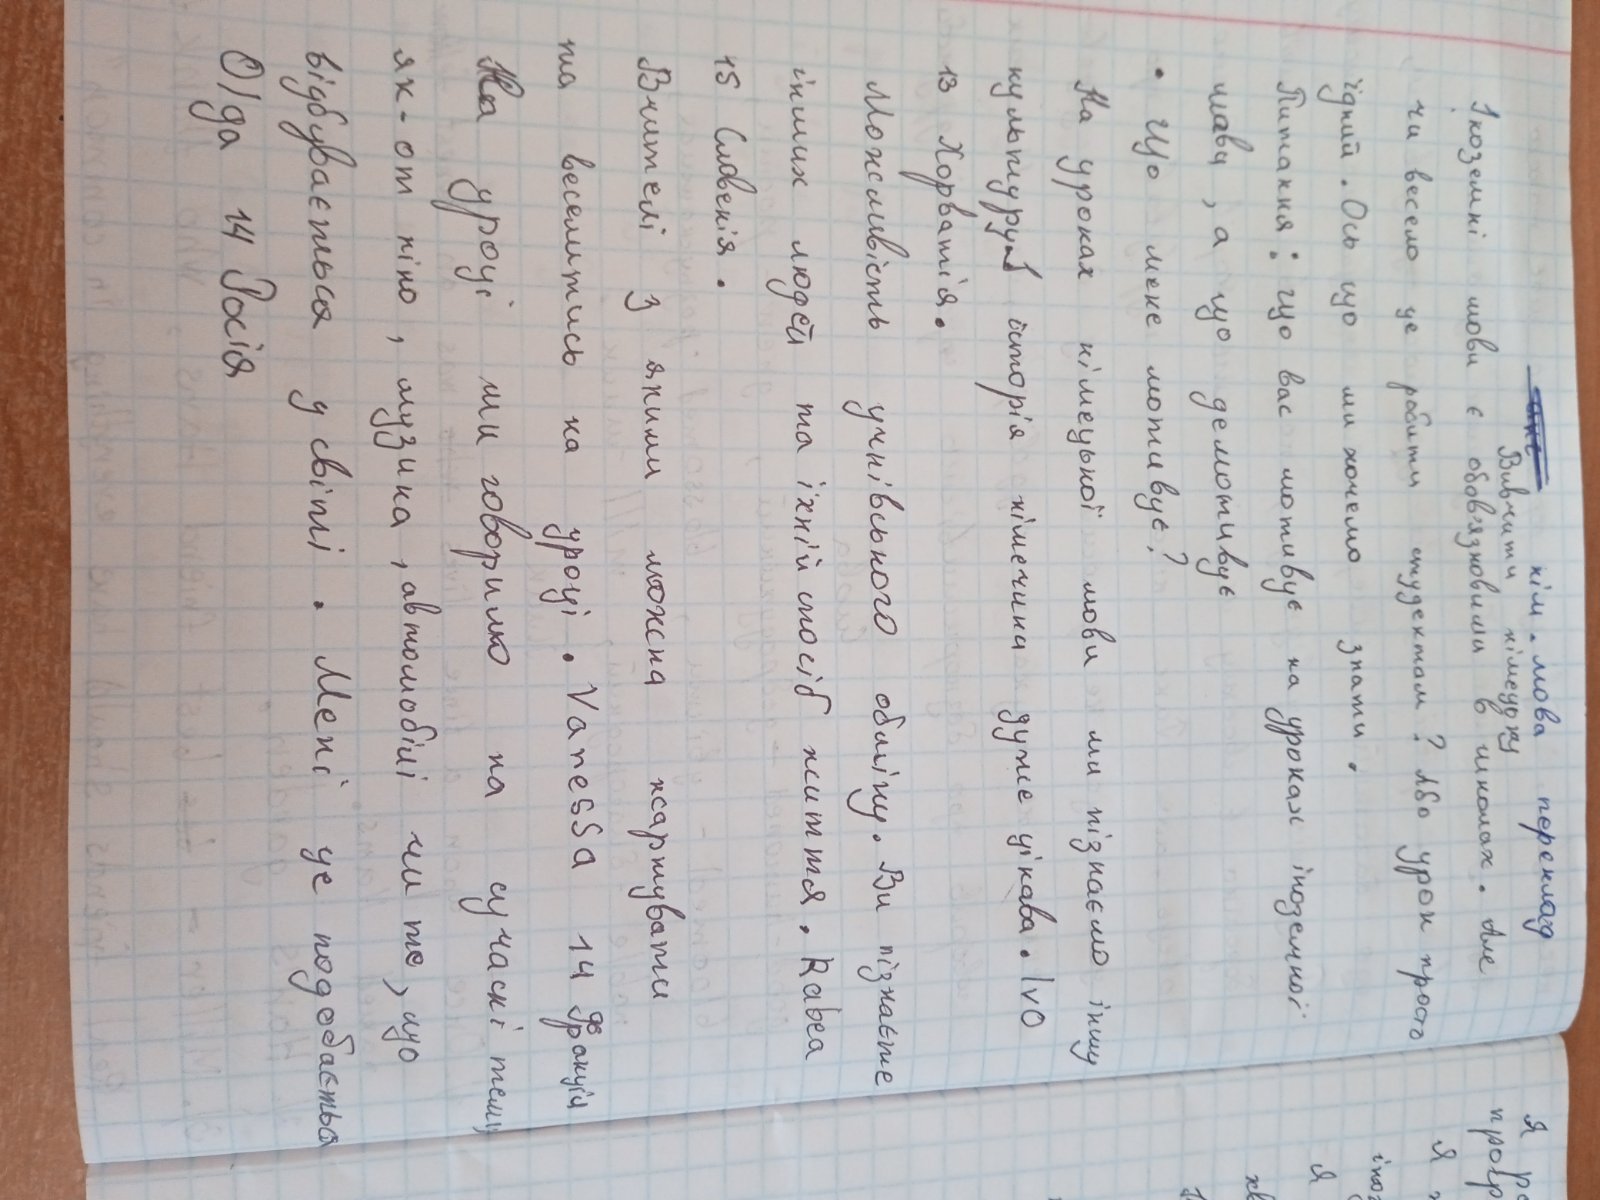 нім. мова переклад
Вивчити німецьку
Іноземні мови є обов'язковими в школах. Але
чи весело це робити студентам? Або урок просто
їдкий. Ось що ми хочемо знати.
Питання: що вас мотивує на уроках іноземної
мови, а що демотивує
• Що мене мотивує?
На уроках німецької мови ми пізнаємо іншу
культуру історія німеччини дуже цікава. Ivo
13 Хорватія.
Можливість учнівського обміну. Ви пізнаєте
інших людей та їхній спосіб життя. Rabea
15 Словенія.
Вчителі з якими можна жартувати
та веселитись на уроці. Vanessa 14 Франція
На уроці ми говоримо на сучасні теми
як-от кіно, музика, автомобілі чи те, що
відбувається у світі. Мені це подобається
Olga 14 Росія
я